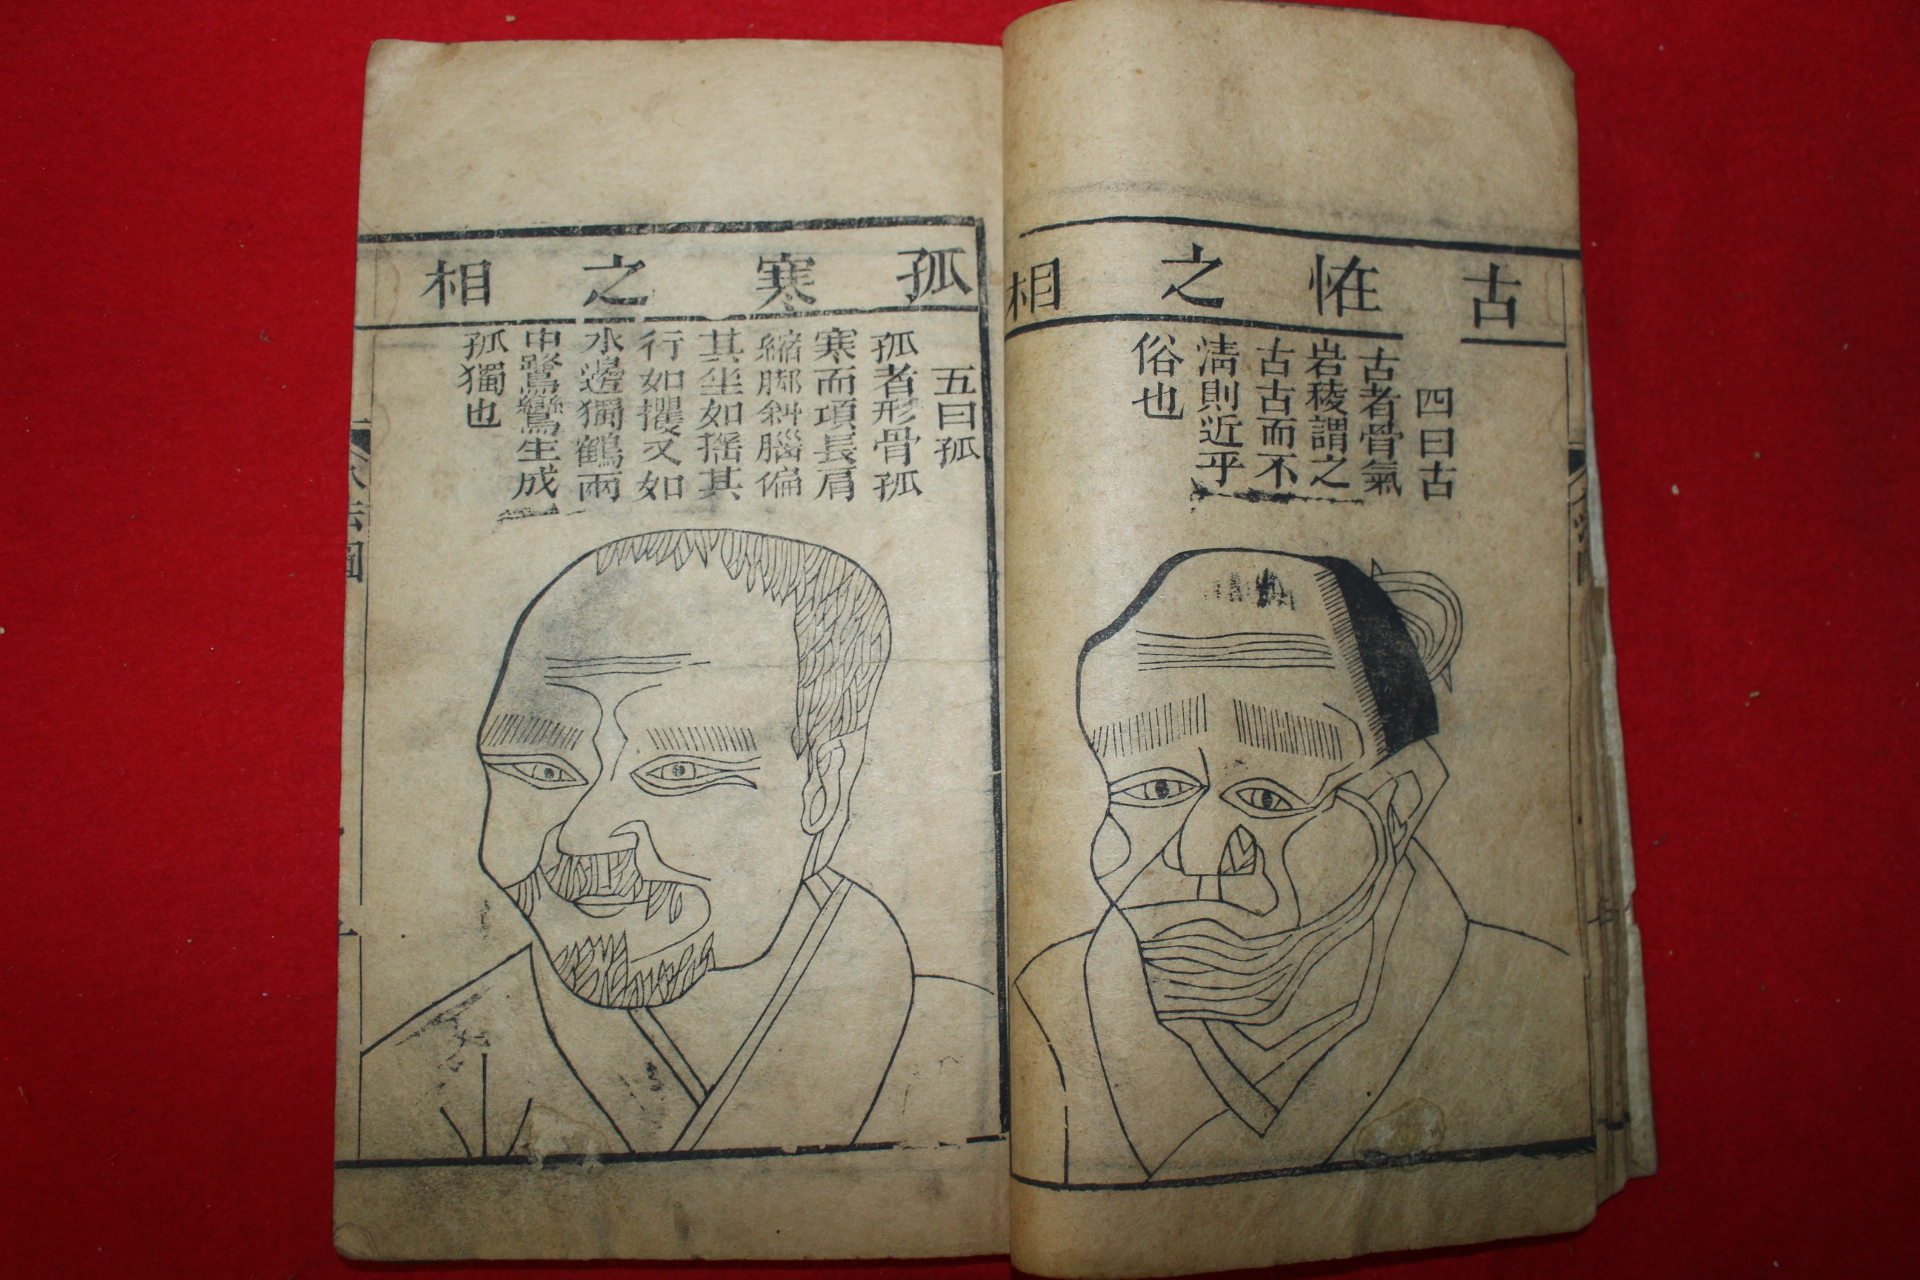 古恠之相
四曰古
古者骨氣
岩稜謂之
古古而不
淸則近乎
俗也
孤寒之相
五曰孤
孤者形骨孤
寒而項長肩
縮脚斜腦偏
其坐如搖其
行如攫又如
水邊獨鶴雨
中鷺鷥生成
孤獨也